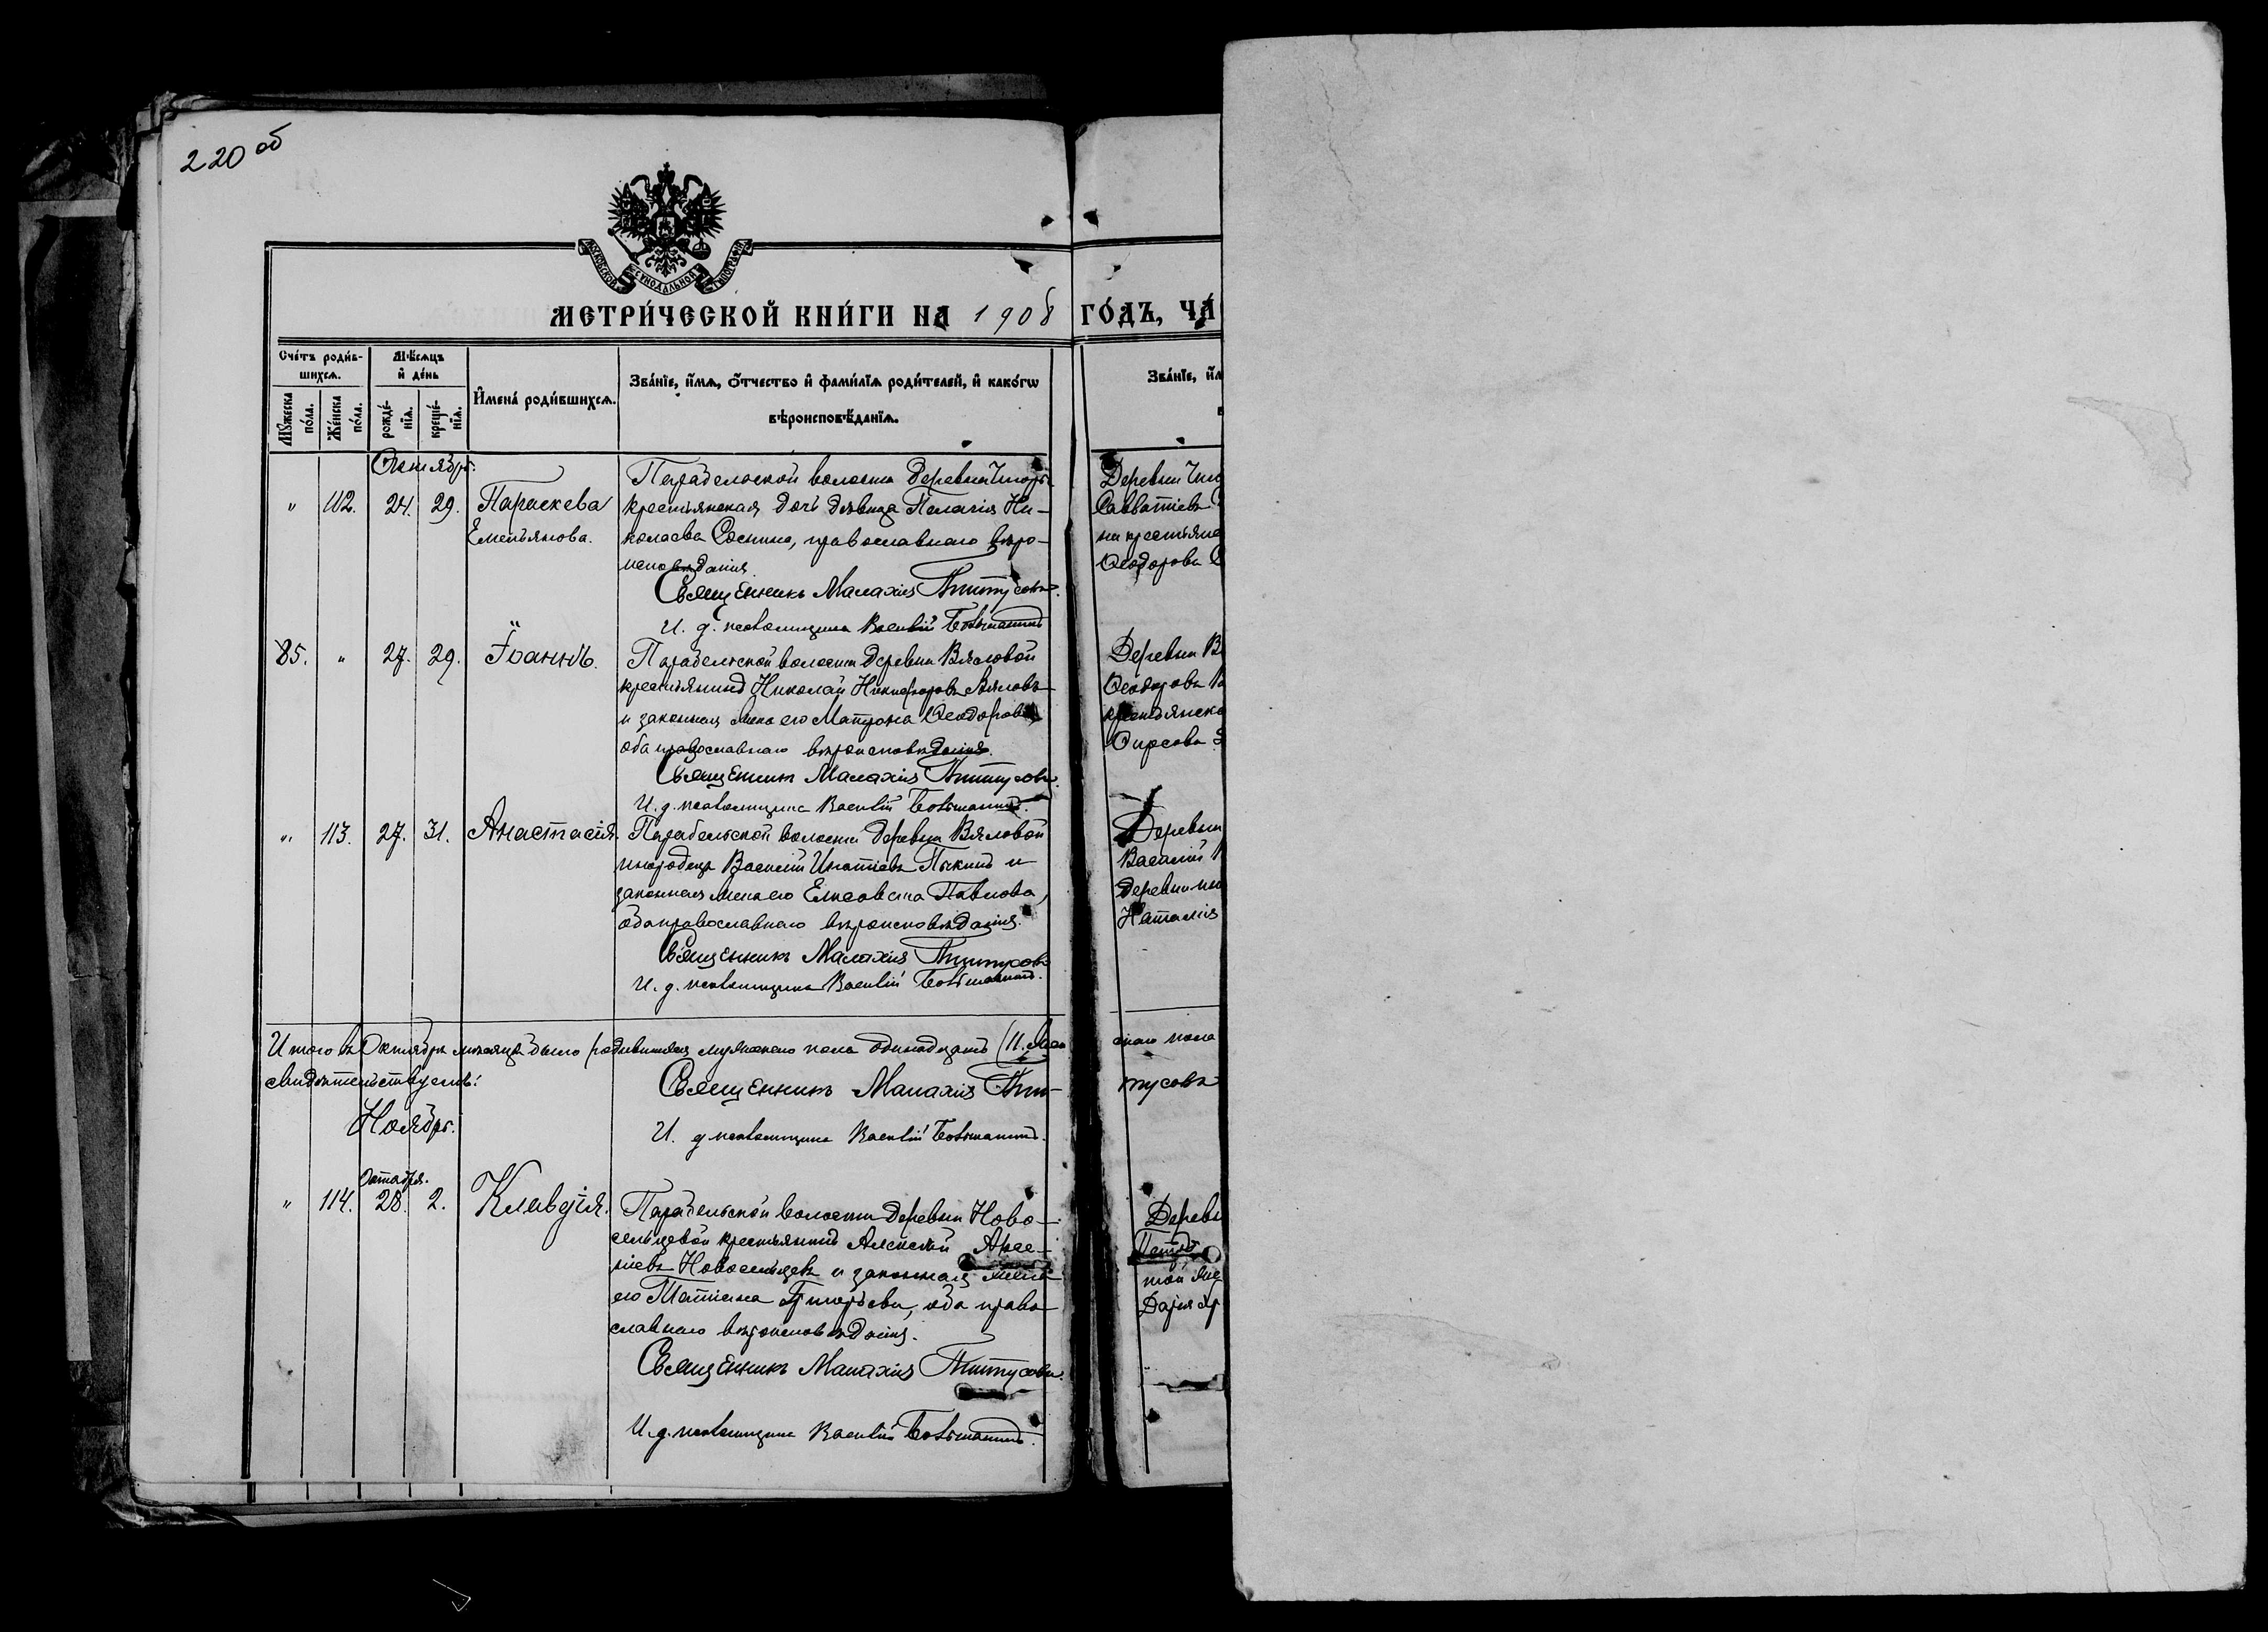 220 об
МОСКОВСКОЙ СѴНОДАЛЬНОЙ ТИПОГРАФІИ
МЕТРИ́ЧЕСКОЙ КНИ́ГИ НА 1908
Сче́тъ роди́в-
шихсѧ.
Мѣ́сѧцъ
и҆ де́нь
Мꙋ́жеска
по́ла.
Же́нска
по́ла.
рожде́-
нїѧ.
креще́-
нїѧ.
И҆мена́ роди́вшихсѧ.
Зва́нїе, и҆́мѧ, ѻ҆́тчество и҆ фами́лїѧ роди́телей, и҆ како́гѡ
вѣроисповѣ́данїѧ.
Октябрь.
" 112. 24. 29. Параскева
Емельянова.
Парабельской волости деревни
крестьянская дочь девица Пелагія Ни-
колаева Соснина, православнаго вѣро-
исповѣданія.
Священникъ Малахія Титусовъ.
И. д. псаломщика Василій
85. " 27. 29. Іоаннъ.
Парабельской волости деревни Вяловой
крестьянинъ Николай Никифоровъ Вяловъ
и законная жена его Матрона Ѳеодорова
оба православнаго вѣроисповѣданія.
Священникъ Малахія Титусовъ.
И. д. псаломщика Василій
" 113. 27. 31. Анастасія.
Парабельской волости деревни Вяловой
инородецъ Василій Игнатіевъ и
законная жена его Елисавета Павлова,
оба православнаго вѣроисповѣданія.
Священникъ Малахія Титусовъ
И. д. псаломщика Василій
Итого въ Октябрѣ мѣсяцѣ было родившихся мужескаго пола одинадцать (11.
свидѣтельствуемъ:
Священникъ Малахія Тит-
И. д псаломщика Василій
Ноябрь.
Октября.
" 114. 28. 2. Клавдія.
Парабельской волости деревни Ново-
сельцевой крестьянинъ Алексій Арсе-
ніевъ Новосельцевъ и законная жена
его Татіана Григорьева, оба право-
славнаго вѣроисповѣданія.
Священникъ Малахія Титусовъ.
И. д. псаломщика Василій
ГО́ДЪ, ЧА́
Зва́нїе, и҆́м
Деревни
Савватіевъ
на крестьянс
Ѳеодорова С
Деревни В
Ѳеодоровъ
крестьянска
Фирсова
Деревни
Василій
деревни
Наталія
скаго пола
тусовъ
Деревн
Петръ
той же
Дарія